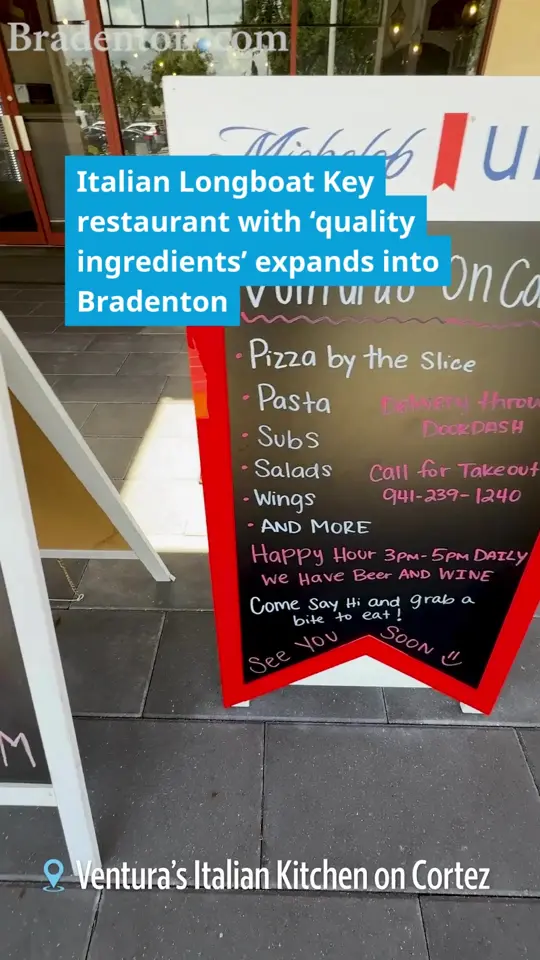 Bradenton.com
Michelob
Italian Longboat Key
restaurant with ‘quality
ingredients’ expands into
Bradenton
On
• Pizza by the slice
• Pasta
Delivery
DOORDASH
• Subs
• Salads
Call for Takeout
• Wings
941-239-1240
• AND MORE
Happy Hour 3PM-5PM DAILY
We Have Beer AND WINE
Come Say Hi and grab a
bite to eat!
See You Soon
M
Ventura’s Italian Kitchen on Cortez